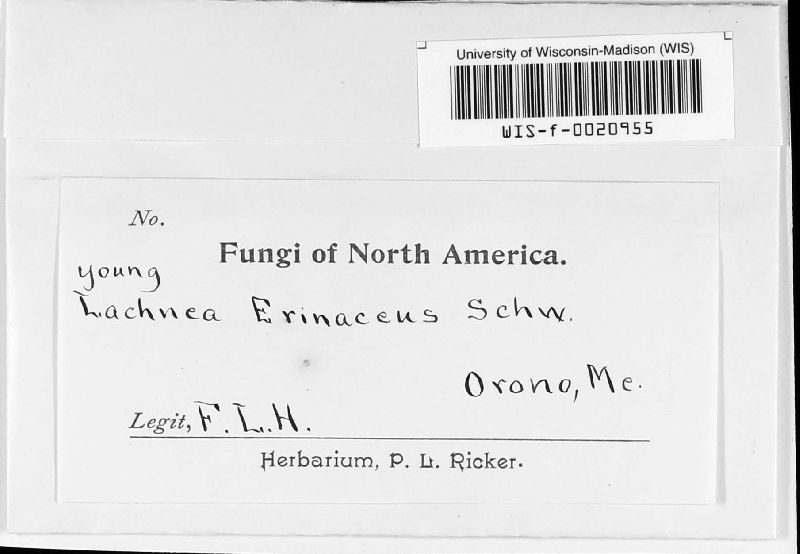 University of Wisconsin-Madison (WIS)
WIS-f-0020955
No.
Fungi of North America.
young
Lachnea Erinaceus Schw.
Orono, Me.
Legit, F. L. H.
Herbarium, P. L. Ricker.